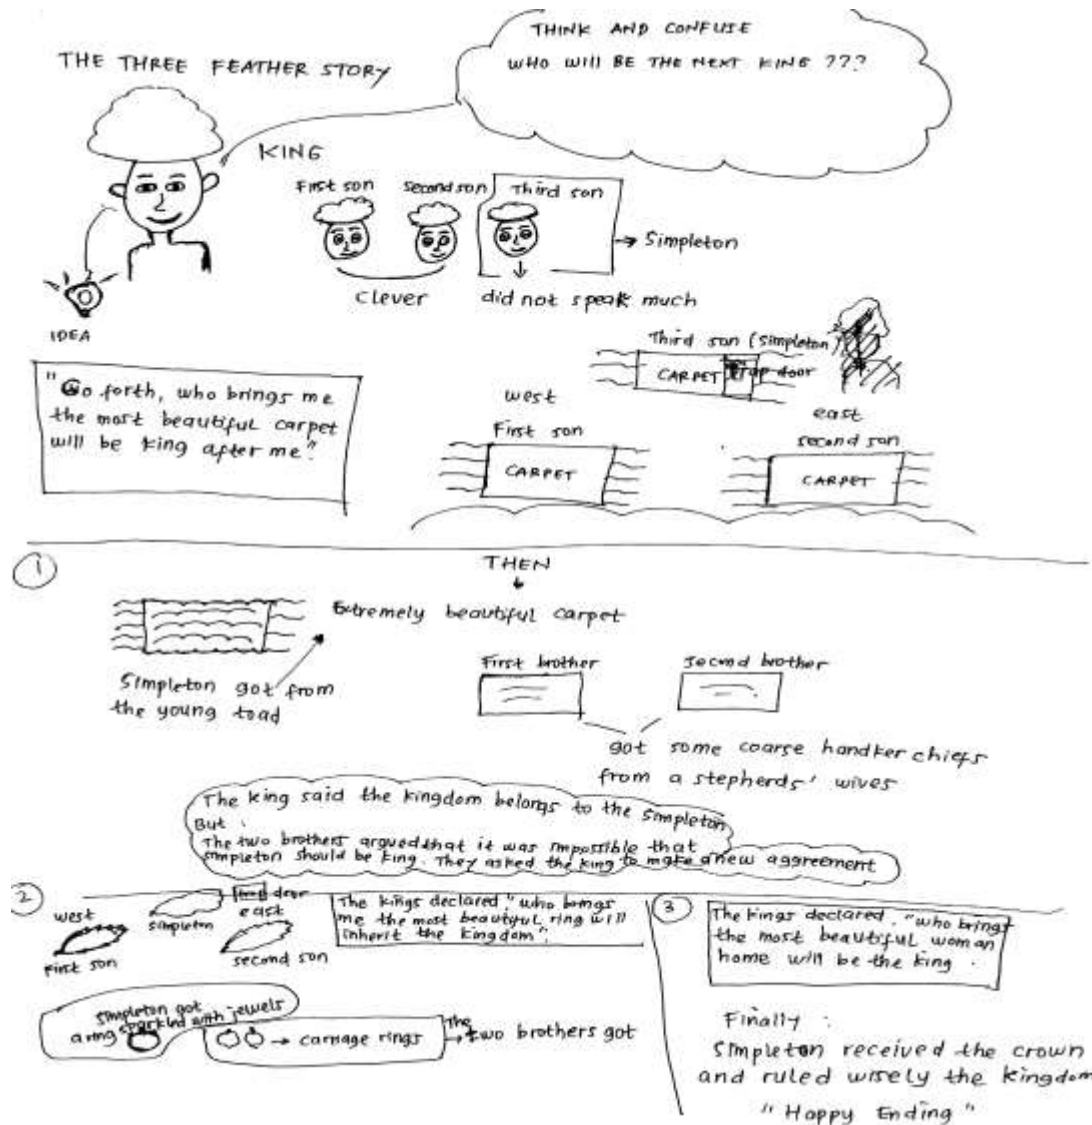 THINK AND CONFUSE
WHO WILL BE THE NEXT KING ???
THE THREE FEATHER STORY
KING
First son
Second son
Third son
Simpleton
clever
did not speak much
IDEA
"Go forth, who brings me
the most beautiful carpet
will be king after me."
Third son (Simpleton)
CARPET
Trap door
west
First son
CARPET
east
second son
CARPET
1
THEN
Extremely beautiful carpet
Simpleton got from
the young toad
First brother
Second brother
got some coarse handkerchiefs
from a stepherds' wives
The king said the kingdom belongs to the simpleton
But :
The two brothers argued that it was impossible that
simpleton should be king. They asked the king to make a new aggreement
2
west
first son
simpleton
trap door
east
second son
The kings declared "who brings
me the most beautiful ring will
inherit the kingdom".
simpleton got
a ring sparkled with jewels
carriage rings
The two brothers got
3
The kings declared. "who brings
the most beautiful woman
home will be the king.
Finally :
Simpleton received the crown
and ruled wisely the kingdom
"Happy Ending"